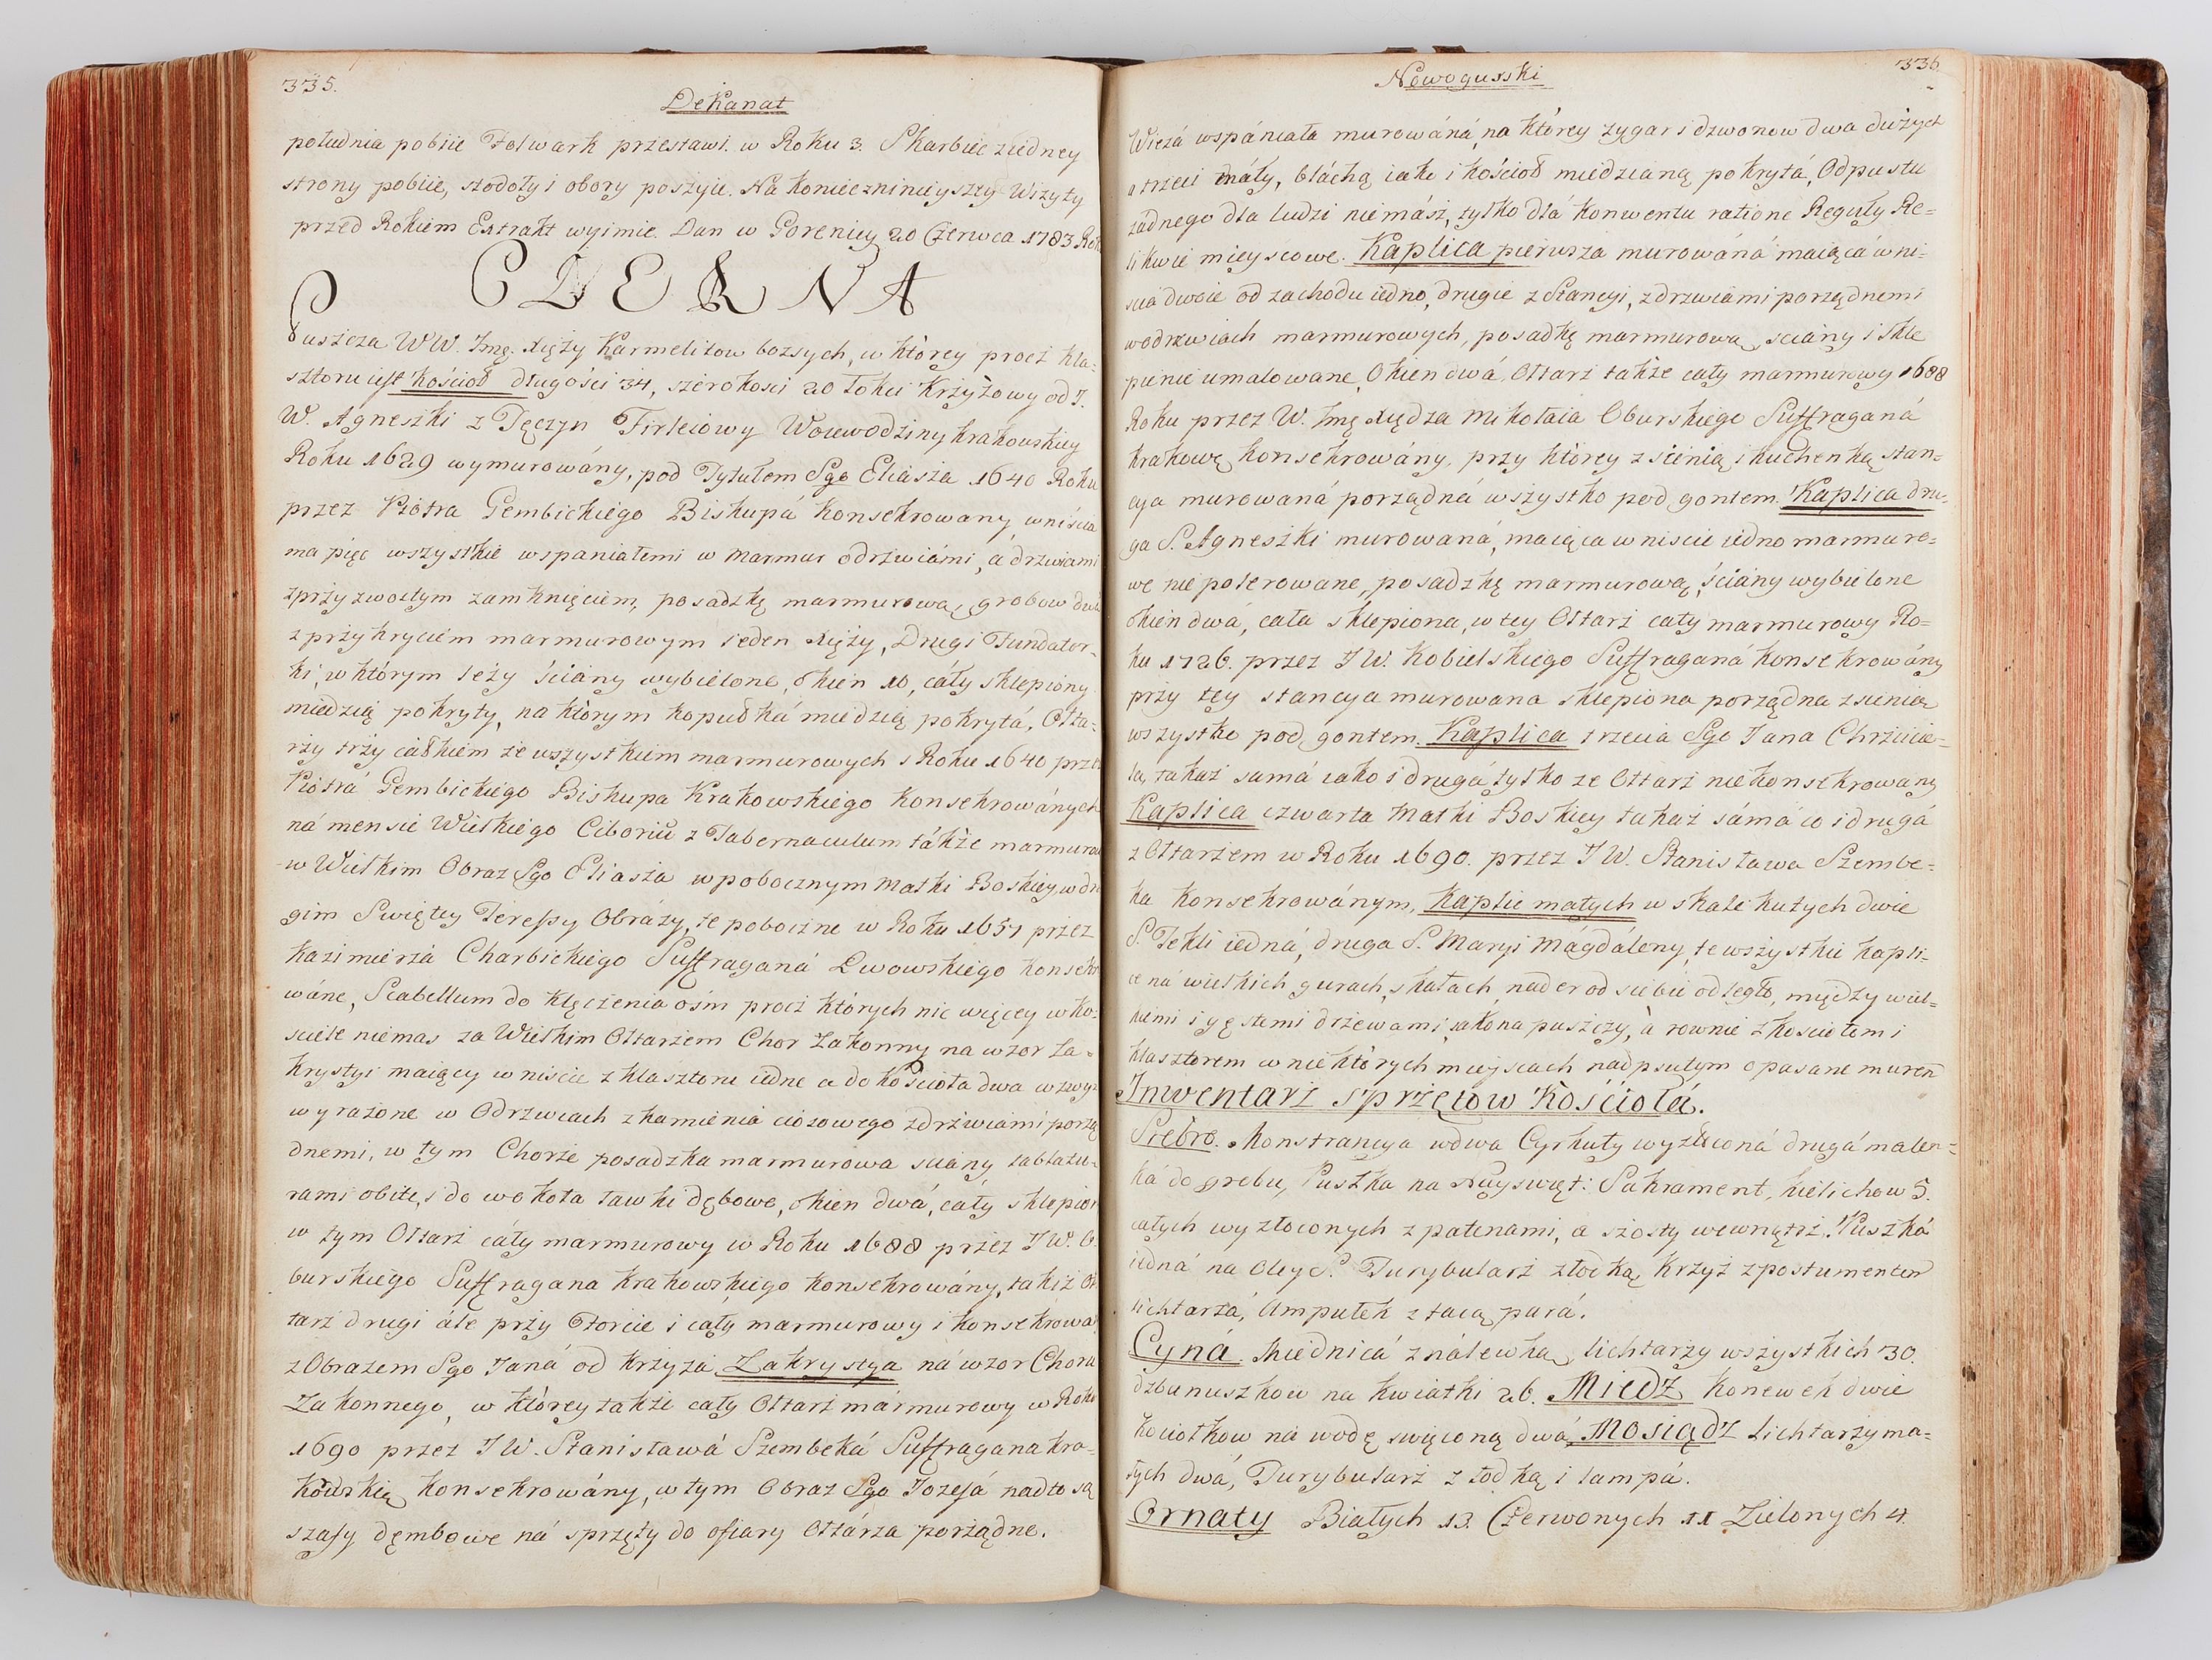 335.
Dekanat
południa pobiie Folwark przestawi. w Roku 3. Skarbiec ziedney
strony pobiie, stodoły i obory poszyie. Na koniec ninieyszey Wizyty
przed Rokiem Extrakt wyimie. Dan w Goreniey 20 Czerwca 1783 Roku
CZERNA
Puszcza WW. Jmę. Xięży Karmelitow bosych, w którey procz kla=
sztoru iest kościoł długości 34, szerokosci 20 łokci Krzyżowy od J.
W. Agneszki z Tęczyn Firleiowy Woiewodziny krakowskiey
Roku 1629 wymurowány, pod Tytułem Sgo Eliasza 1640 Roku
przez Piotra Gembickiego Biskupá konsekrowany, wniścia
ma pięc wszystkie wspaniałemi w marmur odrzwiámi, a drzwiami
zprzyzwoitym zamknięciem, posadzkę marmurową, grobow dwa
z przykryciem marmurowym ieden Xięży, Drugi Fundator=
ki, w którym leży ściány wybielone, okien 10, cáły sklepiony
miedzią pokryty, na którym kopułká miedzią pokrytá, Ołta=
rzy trzy całkiem ze wszystkiem marmurowych z Roku 1640 przez
Piotrá Gembickiego Biskupa Krakowskiego konsekrowánych
ná mensie Wielkiego Ciboriū z Tabernaculum tákże marmurow
w Wielkim Obraz Sgo Eliasza w pobocznym Matki Boskiey, w dru
gim Swiętey Teressy Obrázy, te poboczne w Roku 1651 przez
Kazimierzá Charbickiego Suffraganá Lwowskiego konsekro
wáne, Scabellum do klęczenia ośm procz których nic więcey w ko=
sciele niemas za Wielkim Ołtarzem Chor Zakonny na wzor Za=
krystyi maiący wniscie z klasztoru iedne a do kościoła dwa wzwyż
wyrażone w Odrzwiach z kamieniá ciosowego zdrzwiámi porzą
dnemi, w tym Chorze posadzka marmurowa sciány tablatu=
rami obite, i do wokoła ławki dębowe, okien dwá, cały sklepion
w tym Ołtarz cáły marmurowy w Roku 1688 przez JW. O=
burskiego Suffragana krakowskiego konsekrowány, takiż Oł
tarz drugi ále przy Forcie i cáły marmurowy i konsekrowa
z Obrazem Sgo Janá od krzyżá, Zakrystya ná wzor Choru
Zakonnego, w którey także cały Ołtarz mármurowy w Roku
1690 przez JW. Stanisławá Szembeká Suffragana kra=
kowskie̜ konsekrowány, w tym Obraz Sgo Jozefá nadto są
szafy dęmbowe ná sprzęty do ofiary Ołtárza porządne.
336.
Nowogurski
Wieżá wspániała murowáná, na którey zygar i dzwonow dwa dużych
a trzeci máły, bláchą iako i kościoł miedzianą pokrytá, Odpustu
żadnego dla ludzi niemász, tylko dla konwentu ratione Reguły Re=
likwie mieyscowe. Kaplica pierwsza murowáná maiącá wni=
scia dwoie od zachodu iedno, drugie z Stancyi, zdrzwiami porządnemi
wodrzwiach marmurowych, posadkę marmurową, sciány i skle
pienie umalowane, Okien dwá, Ołtarz także cały marmurowy 1688
Roku przez W. Jmę Xiędza Mikołaia Oburskiego Suffraganá
krakowę konsekrowány, przy którey z sienią i kuchenką stan=
cya murowaná porządná wszystko pod gontem. Kaplica dru=
ga S. Agneszki murowaná, maiąca wniscie iedno marmuro=
we niepolerowane, posadzkę marmurową, ściány wybielone
okien dwá, cała sklepiona, w tey Ołtarz cały marmurowy Ro=
ku 1726. przez JW. Kobielskiego Suffraganá konsekrowány
przy tey stancya murowana sklepiona porządna z sienią
wszystko pod gontem. Kaplica trzecia Sgo Jana Chrzcicie=
la, takaż samá iako i drugá tylko ze Ołtarz niekonsekrowany
Kaplica czwarta Matki Boskiey takaż sámá co i drugá
z Ołtarzem w Roku 1690. przez JW. Stanisława Szembe=
ka konsekrowánym, Kaplic małych w skale kutych dwie
S. Tekli iedná, druga S. Maryi Mágdáleny, te wszystkie kapli=
ce ná wielkich gurach, skałach, nader od siebie odległe, między wiel=
kiemi i gęstemi drzewami, iako na puszczy, à rownie z kościołem i
klasztorem w niektórych mieyscach nadpsutym opasane murem̄
Inwentarz sprzętow Kościołá.
Srebro. Monstrancya wdwa Cyrkuły wyzłoconá drugá maleń=
ká do grobu, Puszka na Nayswięt: Sakrament, kielichow 5.
całych wyzłoconych z patenami, a szosty wewnątrz, Puszká
iedná na Oley S. Turybularz złodką krzyż z postumentem̄
lichtarzá, Ampułek z tacą pará.
Cyná. Miednicá z nálewką, lichtarzy wszystkich 30.
dzbanuszkow na kwiatki 26. Miedź konewek dwie
kociołkow ná wodę swięconą dwá, Mosiądz lichtarzy ma=
łych dwá, Turybularz z łodką i lampá.
Ornaty Białych 13. Czerwonych 11 Zielonych 4.